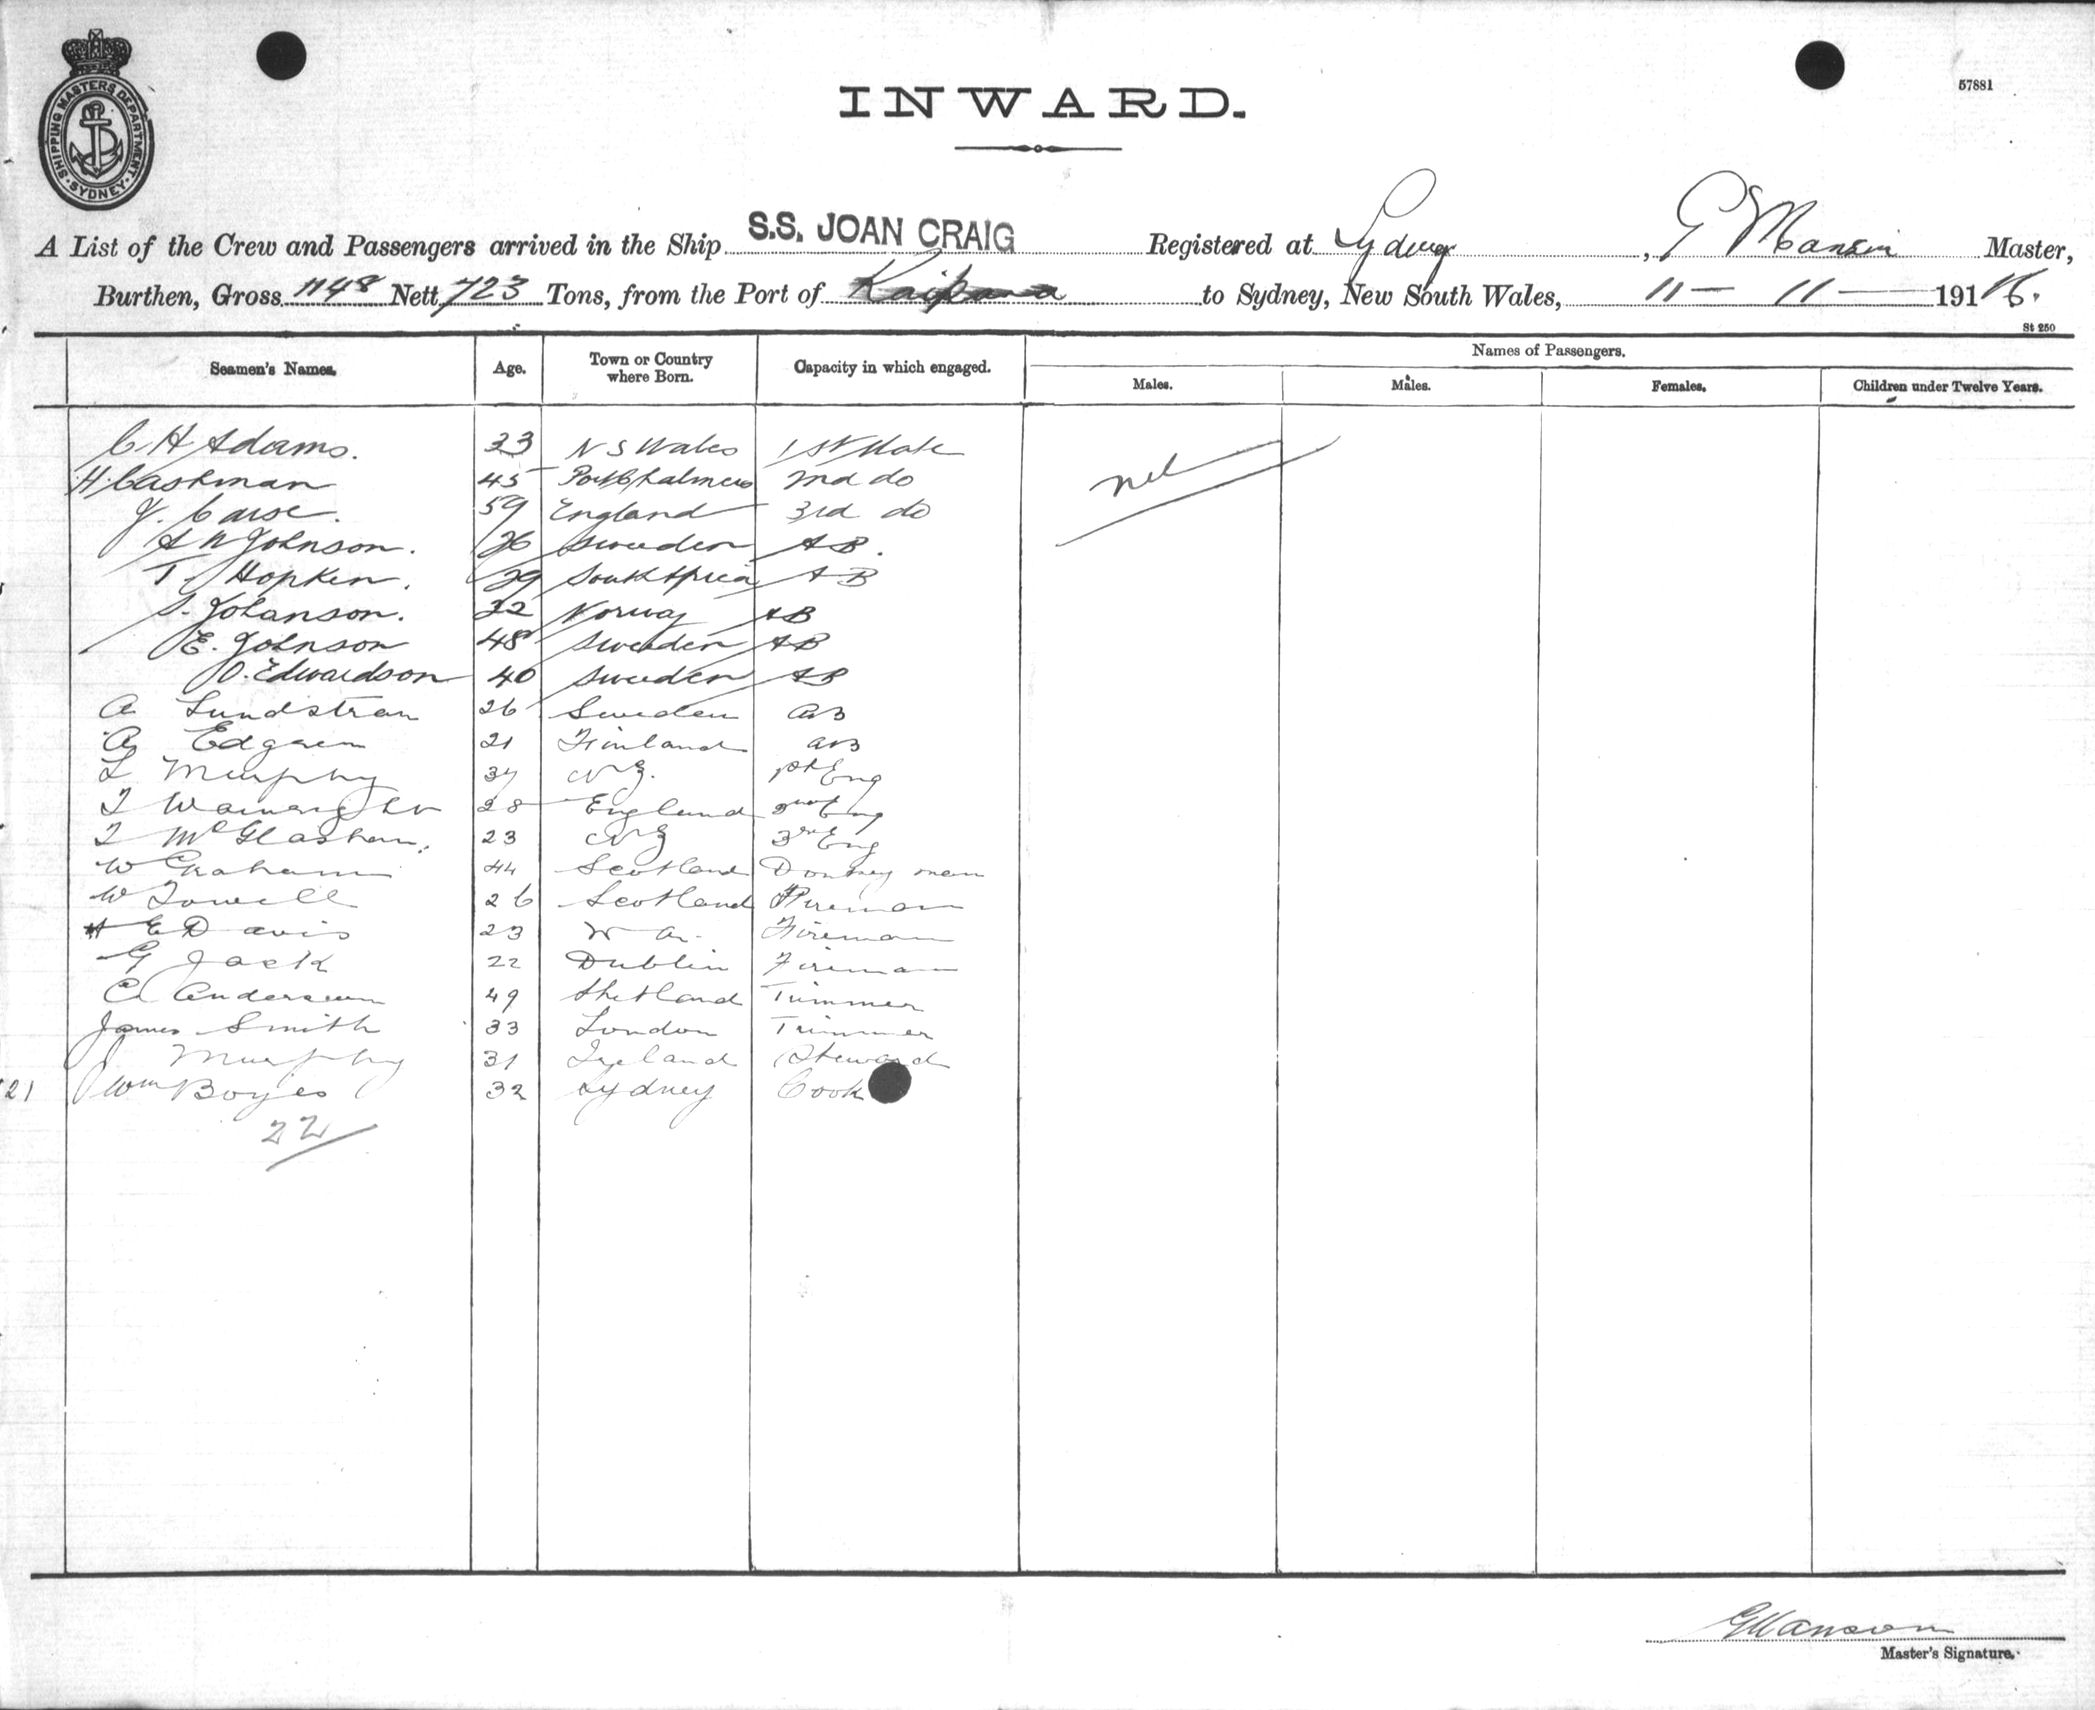 SHIPPING MASTERS DEPARTMENT · SYDNEY ·
57881
INWARD.
A List of the Crew and Passengers arrived in the Ship S.S. JOAN CRAIG Registered at Sydney, G Manson Master,
Burthen, Gross 1148 Nett 723 Tons, from the Port of Kaipara to Sydney, New South Wales, 11 - 11 - 1916.
St 250
Seamen's Names. Age. Town or Country where Born. Capacity in which engaged. Names of Passengers.
Males. Males. Females. Children under Twelve Years.
C H Adams. 33 N S Wales 1st Mate
H. Cashman 45 Port Chalmers 2nd do Nil
J. Carse. 59 England 3rd do
A W Johnson. 26 Sweden AB.
T. Hopken. 29 South Africa AB
S. Johanson. 32 Norway AB
E. Johnson 48 Sweden AB
O. Edwardson 40 Sweden AB
A Lundstran 26 Sweden AB
A Edgren 21 Finland AB
L Murphy 37 NZ. 1st Eng
T 28 England 2nd Eng
T McGlashan. 23 NZ 3rd Eng
W Graham 44 Scotland Donkey man
W 26 Scotland Fireman
H E Davis 23 W A. Fireman
G Jack 22 Dublin Fireman
C Anderson 49 Shetland Trimmer
James Smith 33 London Trimmer
J Murphy 31 Ireland Steward
21 Wm Boyes 32 Sydney Cook
22
G Manson
Master's Signature.